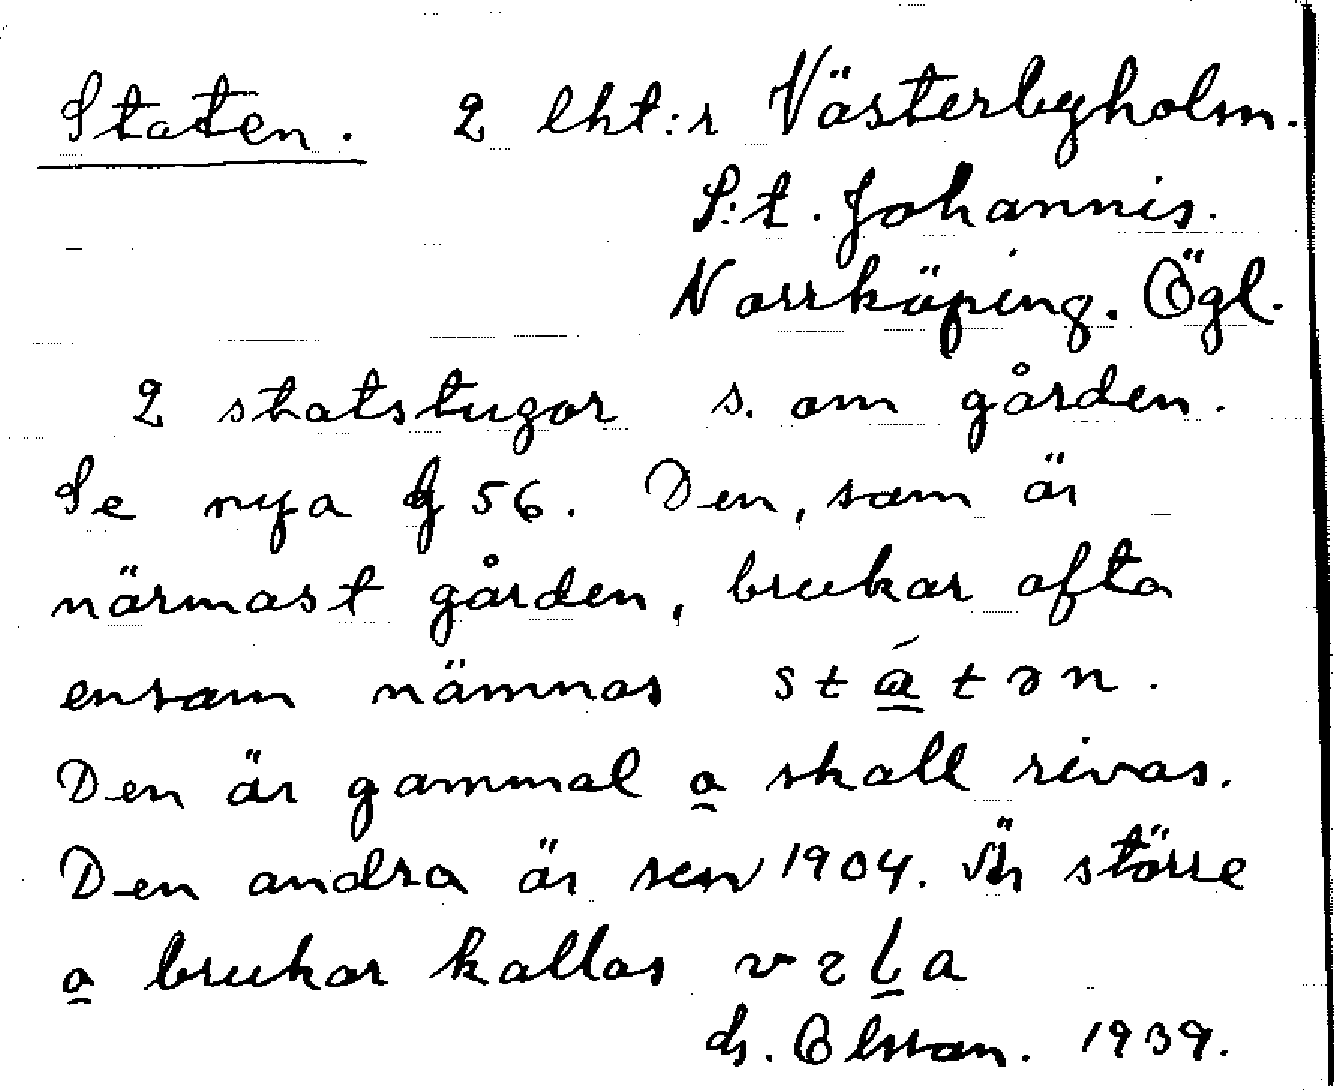 Staten. 2 lht:r Västerbyholm.
S:t. Johannis.
Norrköping. Ögl.
2 statstugor s. om gården.
Se nya 56. Den, som är
närmast gården, brukar ofta
ensam nämnas
Den är gammal o skall rivas.
Den andra är sen 1904. Är större
o brukar kallas
Olsson. 1939.